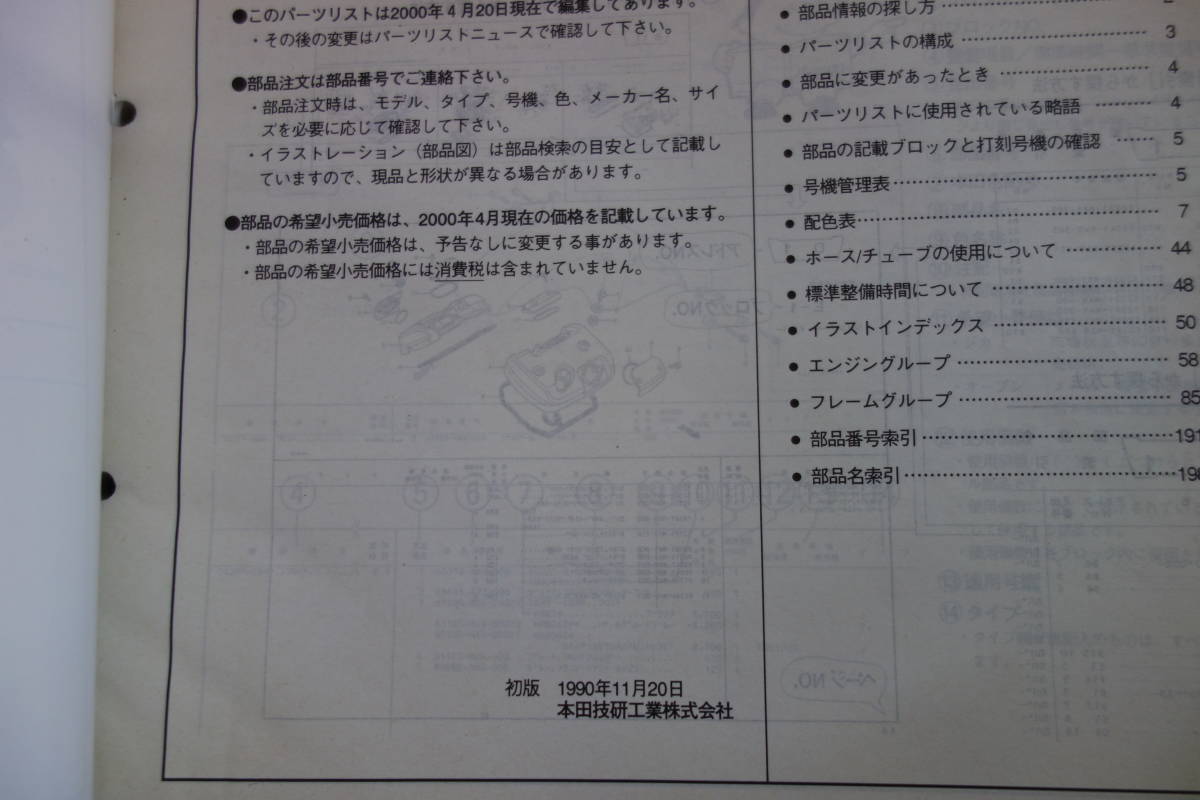 ●このパーツリストは2000年4月20日現在で編集してあります。
・その後の変更はパーツリストニュースで確認して下さい。
●部品注文は部品番号でご連絡下さい。
・部品注文時は、モデル、タイプ、号機、色、メーカー名、サイ
ズを必要に応じて確認して下さい。
・イラストレーション（部品図）は部品検索の目安として記載し
ていますので、現品と形状が異なる場合があります。
●部品の希望小売価格は、2000年4月現在の価格を記載しています。
・部品の希望小売価格は、予告なしに変更する事があります。
・部品の希望小売価格には消費税は含まれていません。
初版 1990年11月20日
本田技研工業株式会社
● 部品情報の探し方 ‥‥‥‥‥‥‥‥ 2
● パーツリストの構成 ‥‥‥‥‥‥‥‥ 3
● 部品に変更があったとき ‥‥‥‥‥‥ 4
● パーツリストに使用されている略語 ‥‥‥ 4
● 部品の記載ブロックと打刻号機の確認 ‥‥ 5
● 号機管理表‥‥‥‥‥‥‥‥‥‥‥ 5
● 配色表‥‥‥‥‥‥‥‥‥‥‥‥‥ 7
● ホース/チューブの使用について ‥‥‥‥ 44
● 標準整備時間について ‥‥‥‥‥‥‥ 48
● イラストインデックス ‥‥‥‥‥‥‥ 50
● エンジングループ ‥‥‥‥‥‥‥‥‥ 58
● フレームグループ ‥‥‥‥‥‥‥‥‥ 85
● 部品番号索引 ‥‥‥‥‥‥‥‥‥‥191
● 部品名索引‥‥‥‥‥‥‥‥‥‥‥